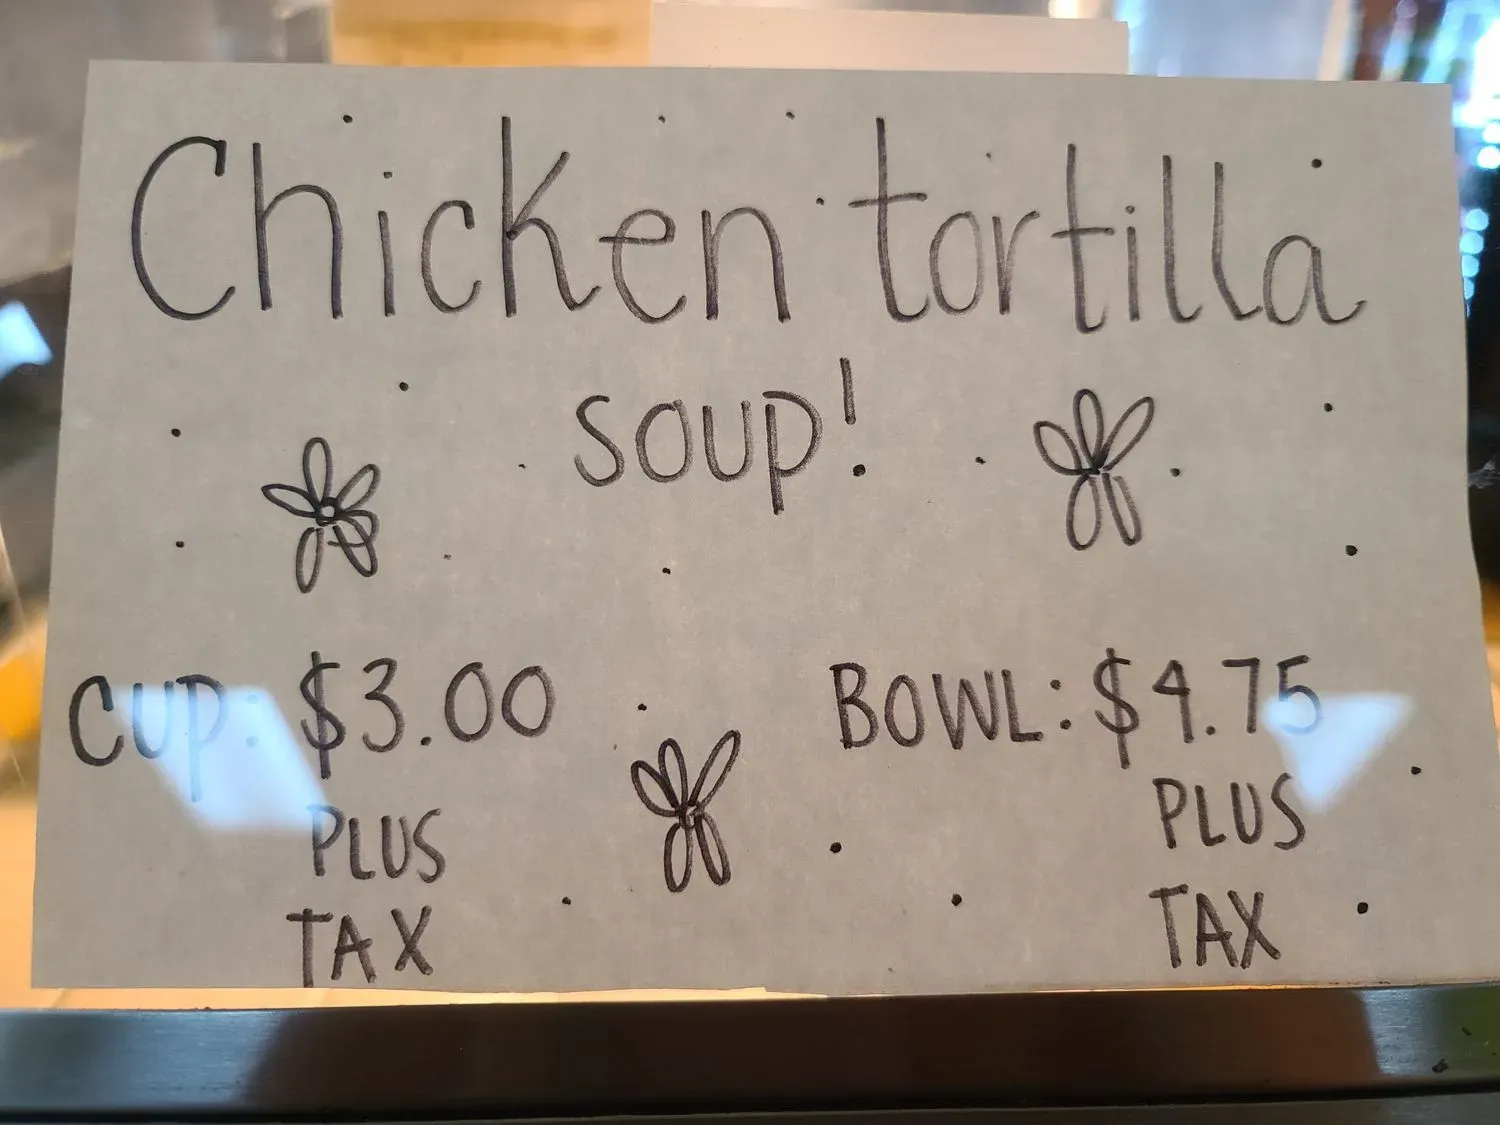 Chicken tortilla
soup!
CUP: $3.00
PLUS
TAX
BOWL: $4.75
PLUS
TAX